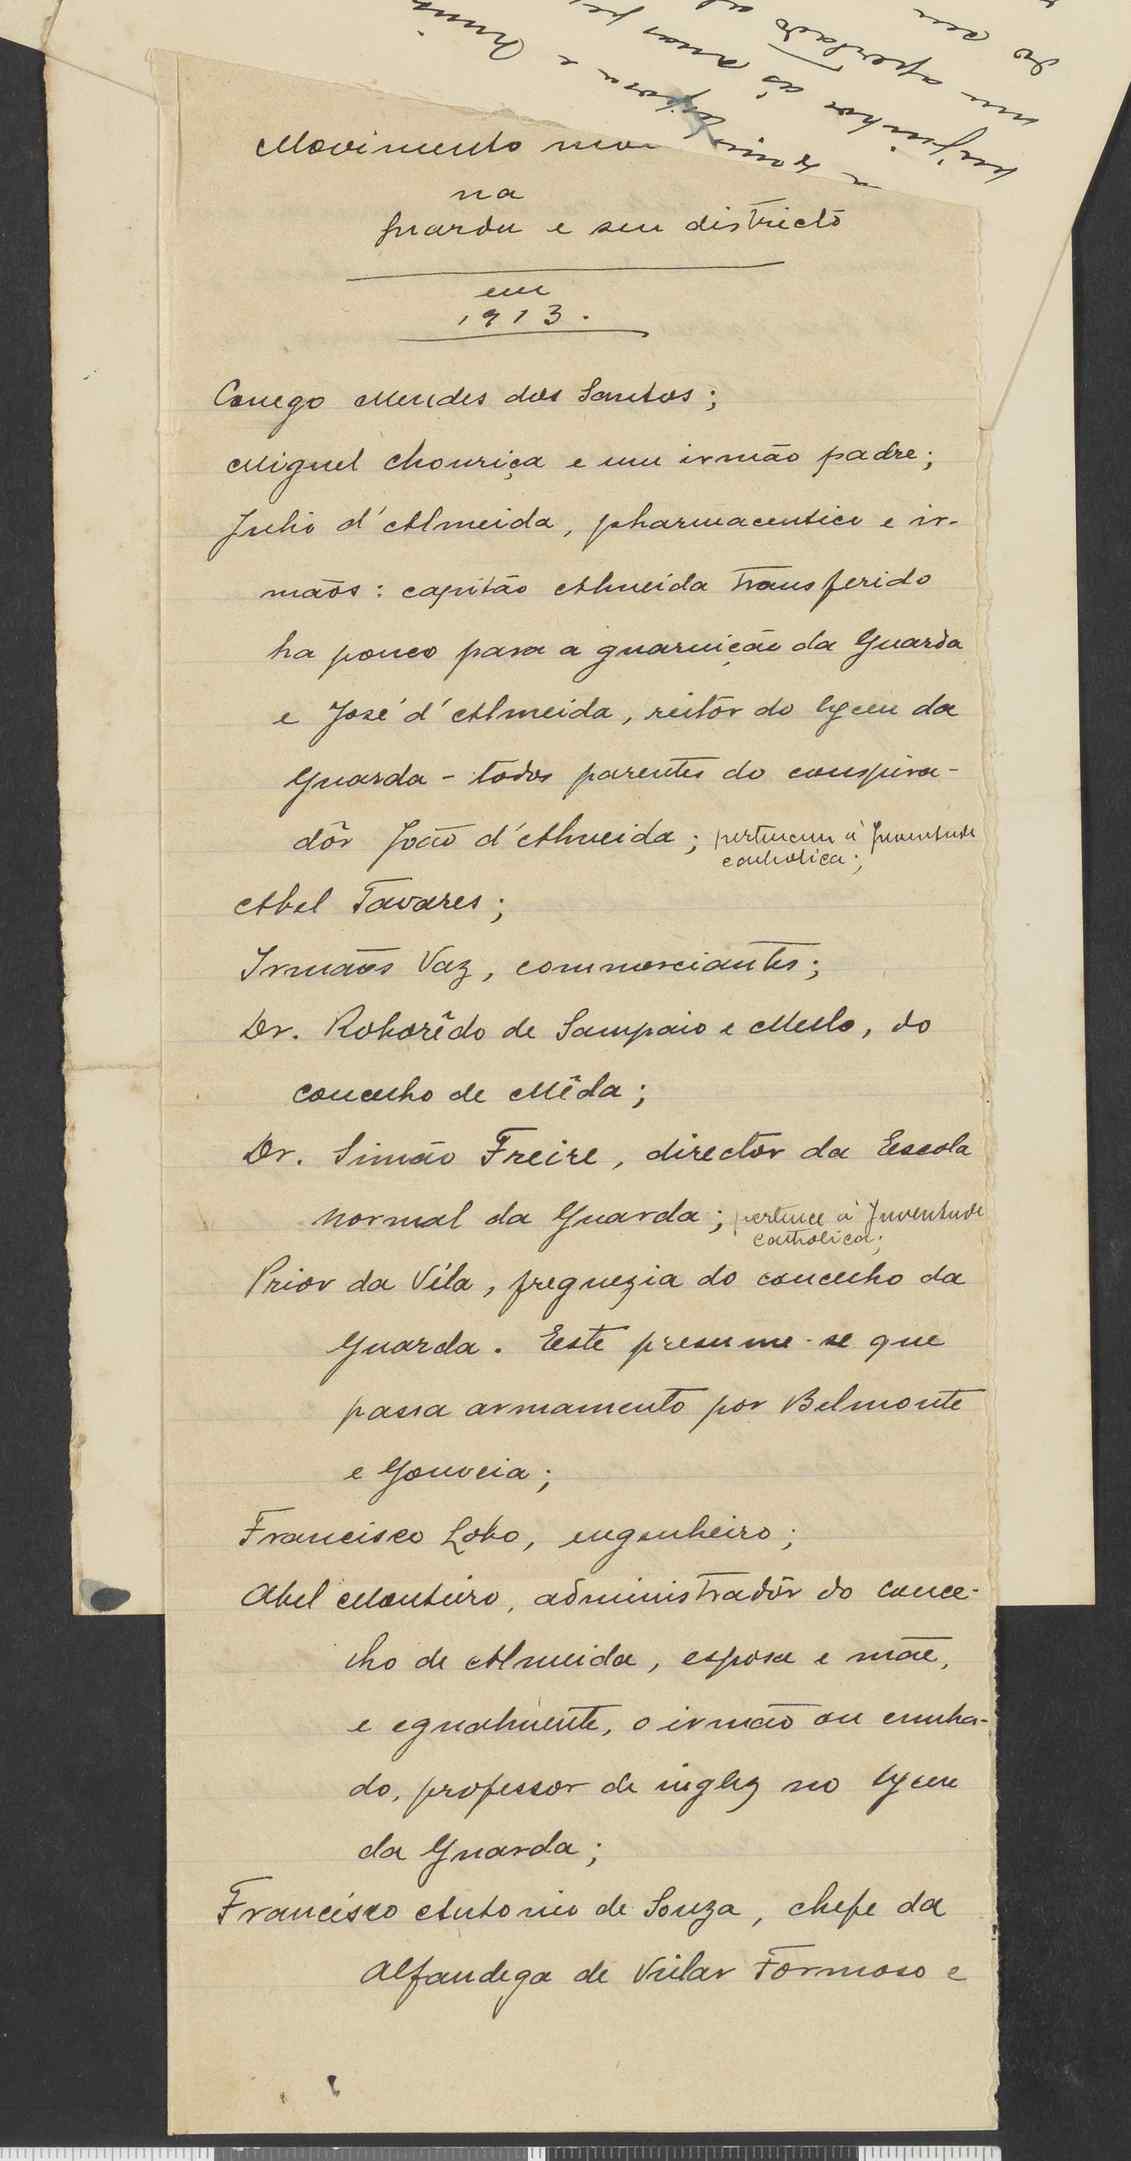 Movimento mon
na
Guarda e seu districto
em
1913.
Conego Mendes dos Santos;
Miguel Chouriça e um irmão padre;
Julio d'Almeida, pharmaceutico e ir-
mãos: capitão Almeida transferido
ha pouco para a guarnição da Guarda
e José d'Almeida, reitôr do lyceu da
Guarda - todos parentes do conspira-
dôr João d'Almeida; pertencem á Juventude
catholica;
Abel Tavares;
Irmãos Vaz, commerciantes;
Dr. Roborêdo de Sampaio e Mello, do
concelho de Mêda;
Dr. Simão Freire, director da Escola
normal da Guarda; pertence á Juventude
catholica;
Prior da Véla, freguezia do concelho da
Guarda. Este presume-se que
passa armamento por Belmonte
e Gouveia;
Francisco Lobo, engenheiro;
Abel Monteiro, administradôr do conce-
lho de Almeida, esposa e mãe,
e egualmente, o irmão ou cunha-
do, professor de inglez no lyceu
da Guarda;
Francisco Antonio de Souza, chefe da
Alfandega de Villar Formoso e